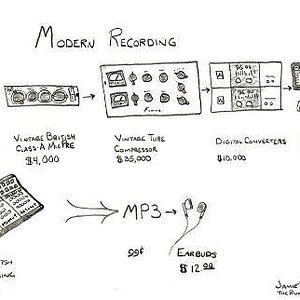 MODERN RECORDING
VINTAGE BRITISH
CLASS-A MICPRE
$4,000
VINTAGE TUBE
COMPRESSOR
$25,000
DIGITAL CONVERTERS
$10,000
MP3
99¢
EARBUDS
$12.00